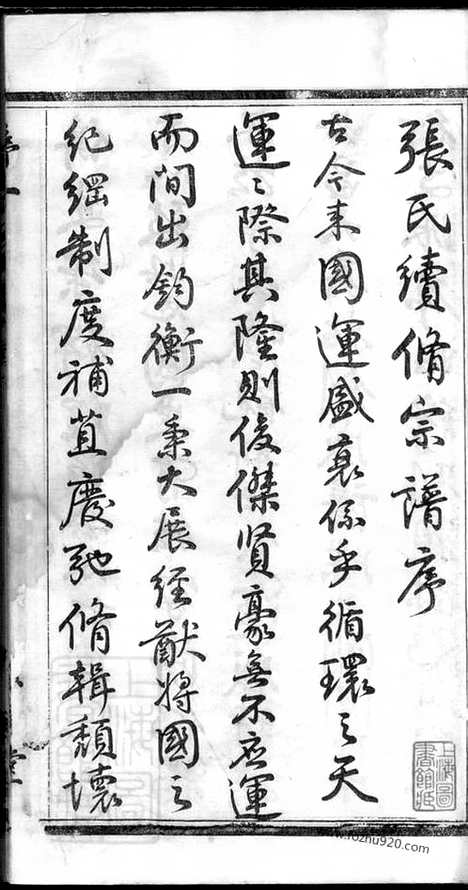 張氏續脩宗譜序
古今来國運盛衰係乎循環之天
運運際其隆則俊傑賢豪無不應運
而間出鈞衡一秉大展經猷将國之
紀綱制度補苴廢弛脩輯頹壞
上海圖書館藏
www.fozhu920.com